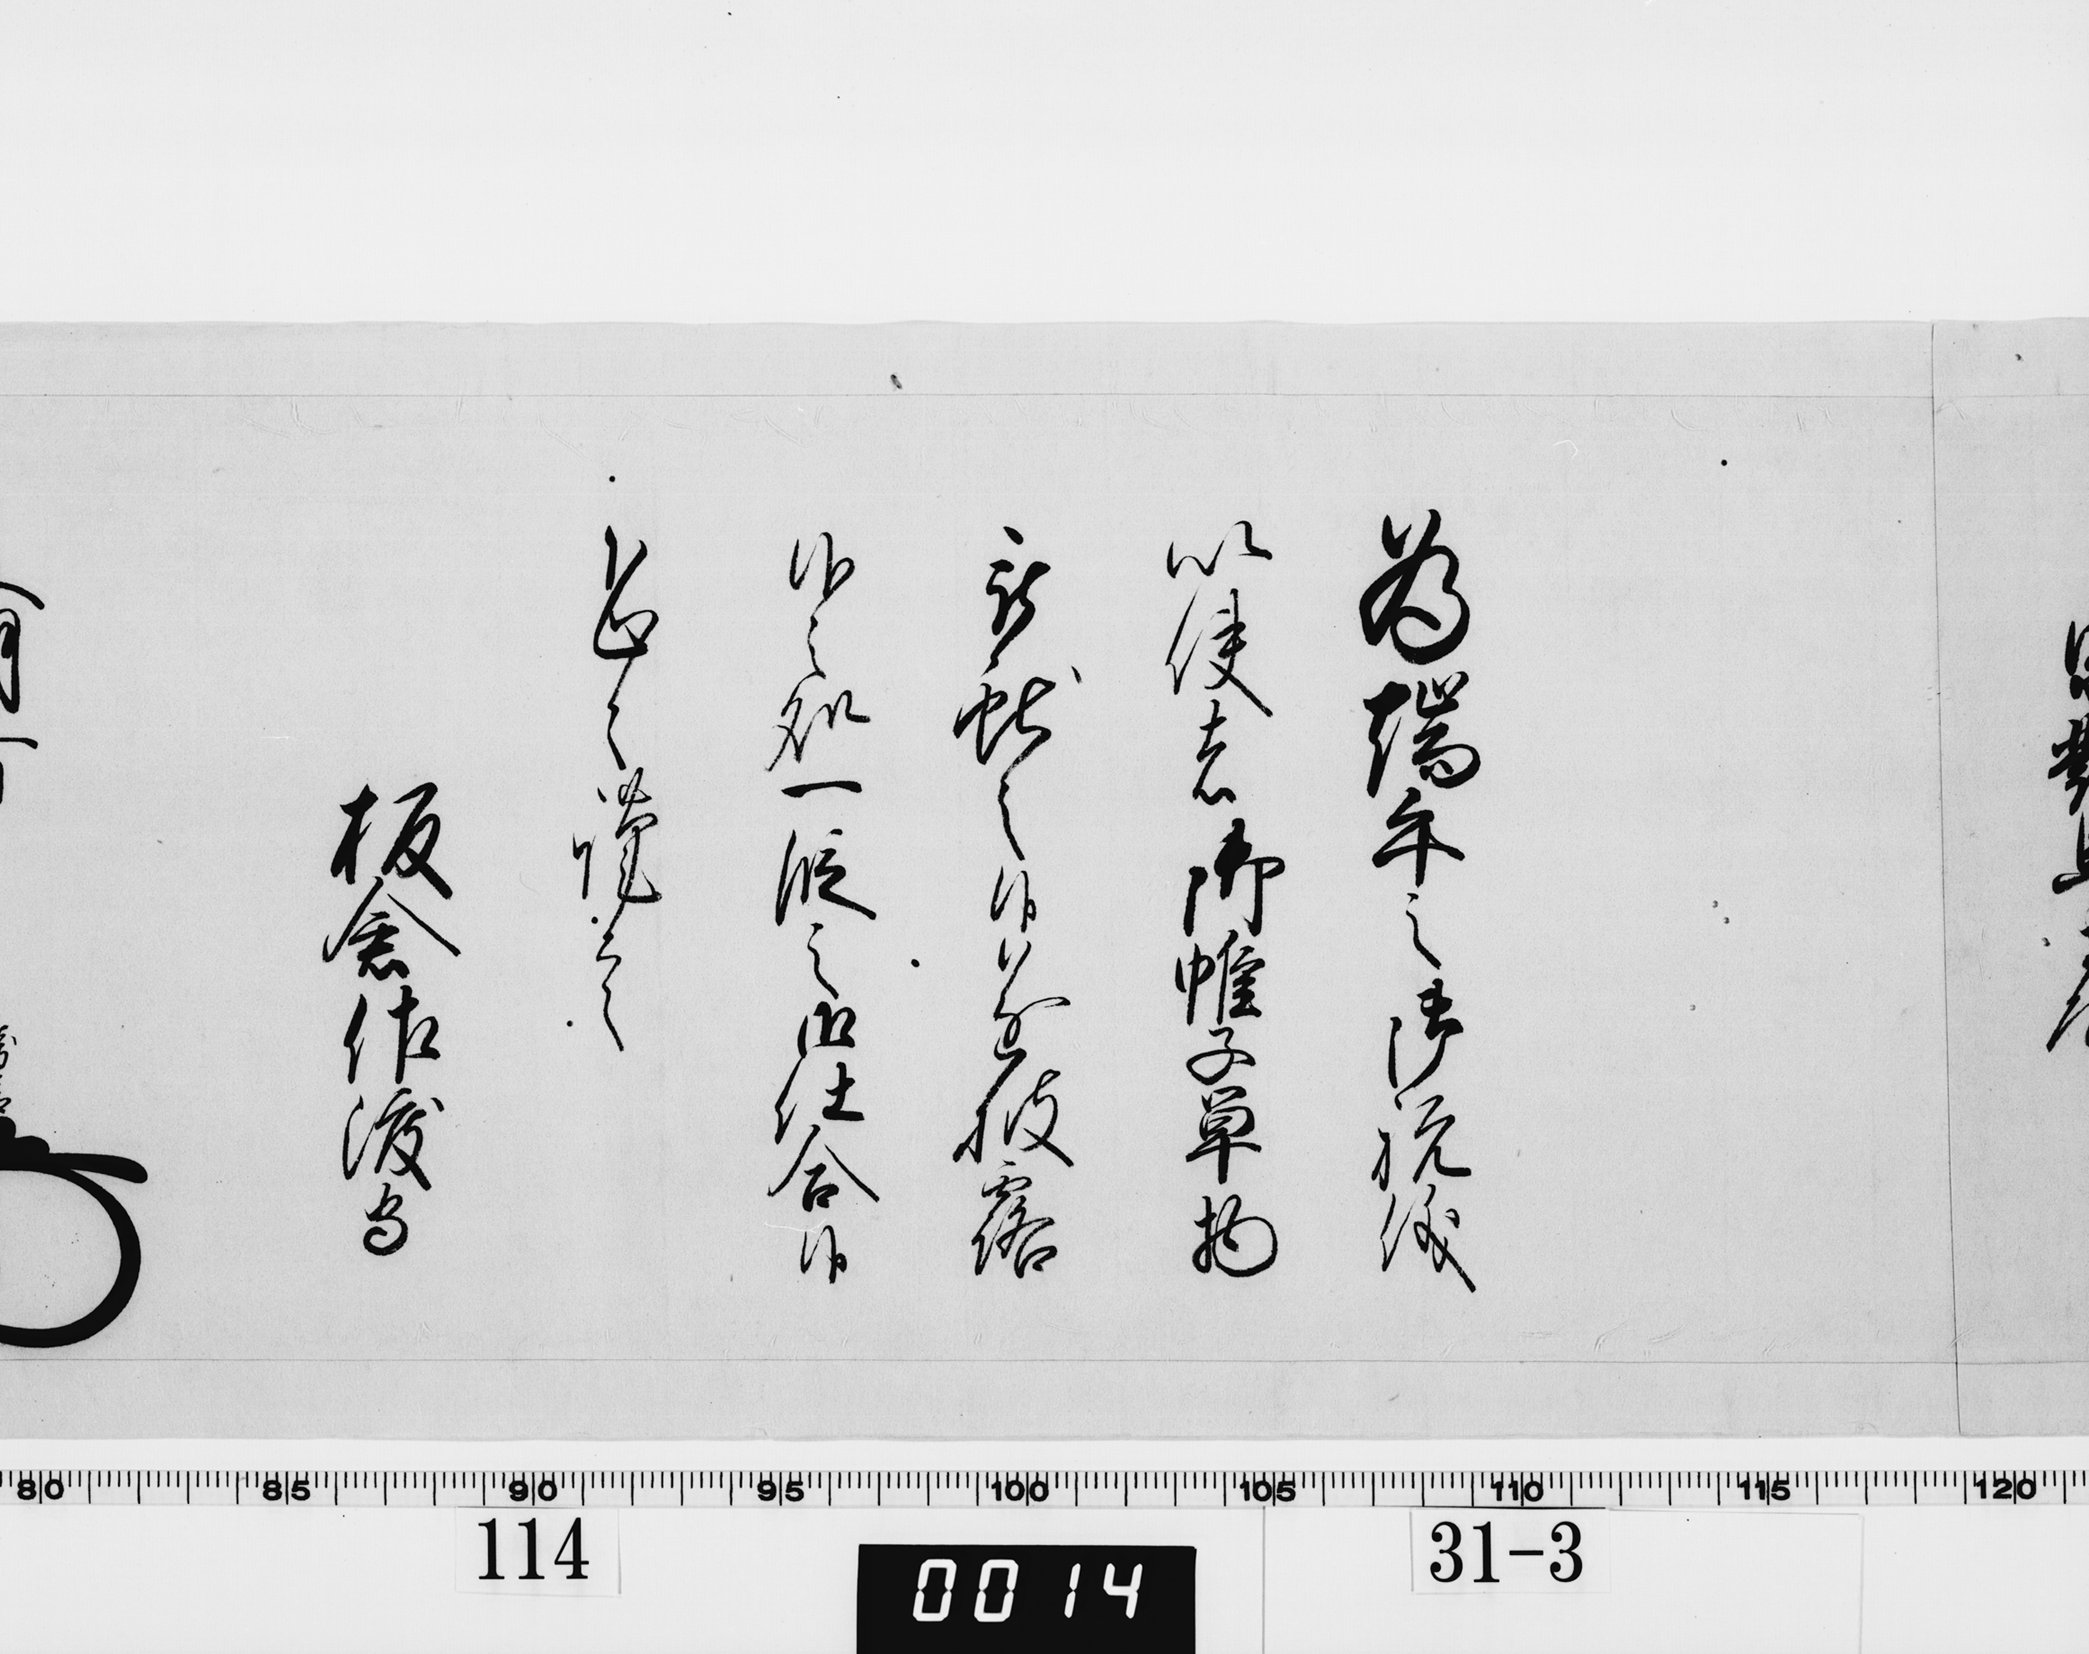 為端午之御祝儀
以使者御帷子単物
被献之候遂披露
候之処一段之御仕合候
恐々謹言
板倉佐渡守
80 85 90 95 100 105 110 115 120
114
0014
31-3